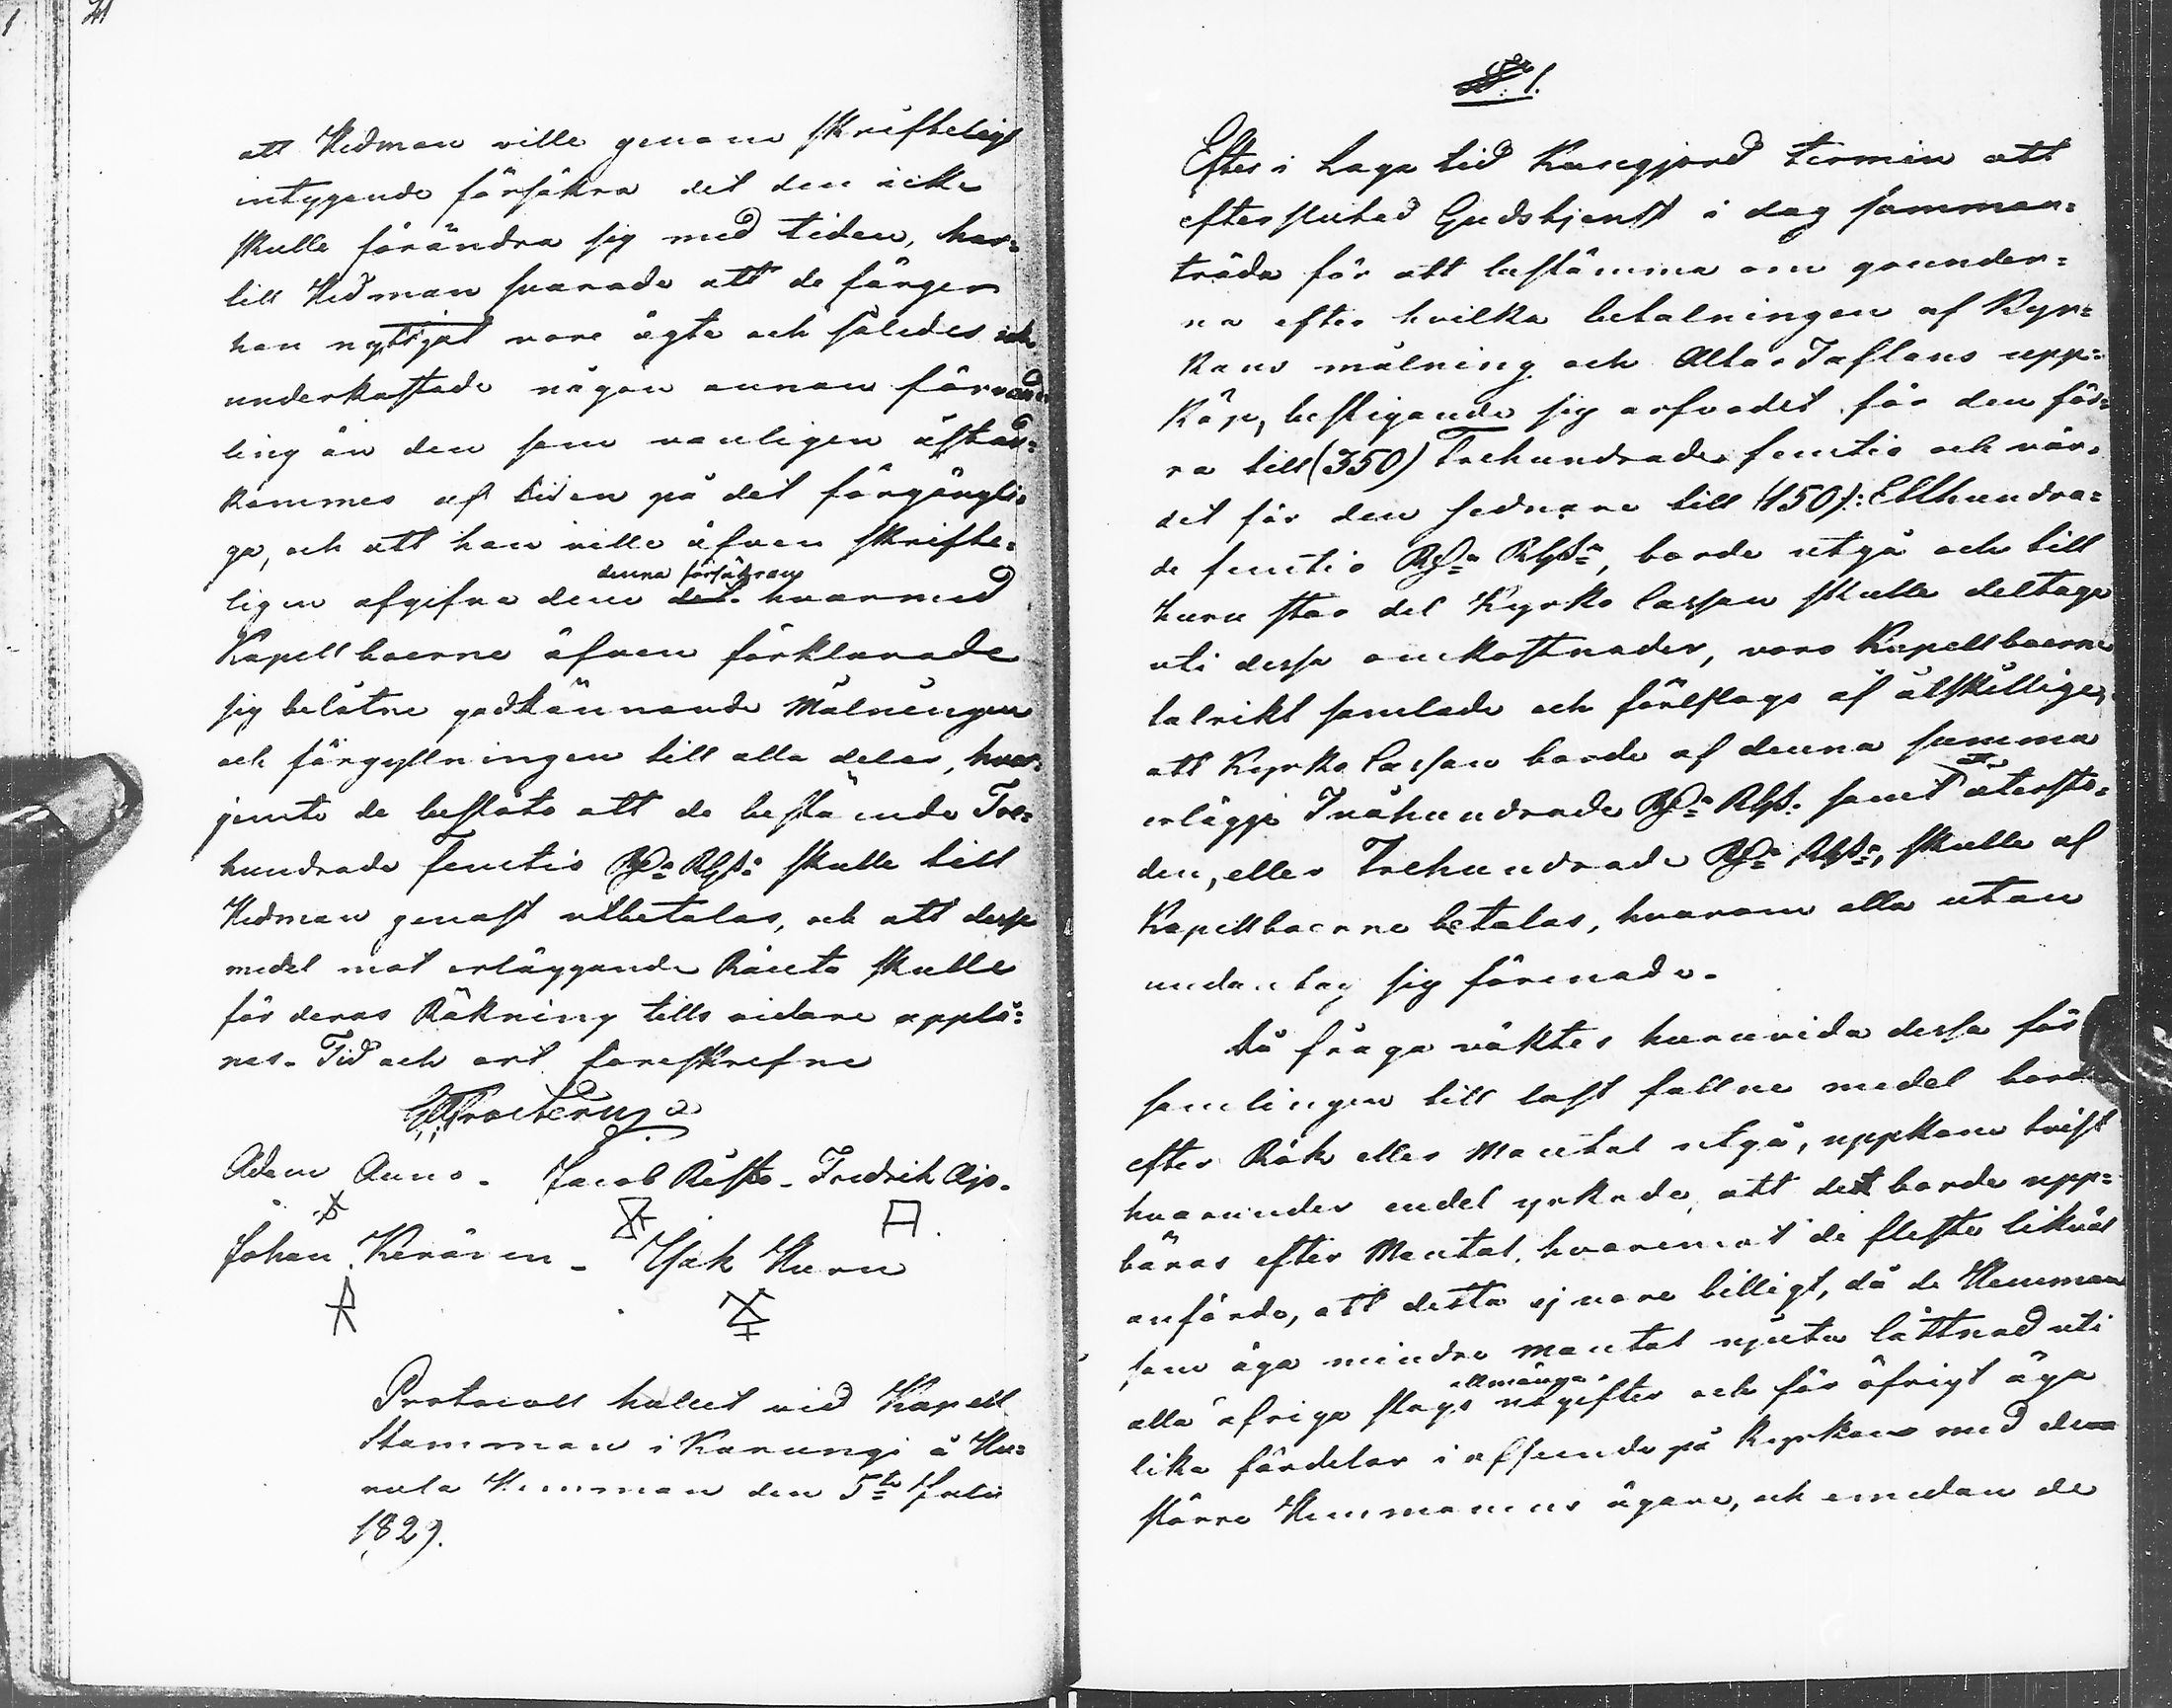 att Hedman ville genom skrifteligt
intygande försäkra det den icke
skulle förändra sig med tiden, här-
till Hedman svarade att de färger
han nyttjat vore ägte och således icke
underkastade någon annan förvand-
ling än den som vanligen åstad-
kommes af tiden på det förgängli-
ga, och att han ville äfven skrifte-
denna försäkran
ligen afgifva dem det. hvarmed
Kapellboerne äfven förklarade
sig belåtne godkännande Målningen
och förgyllningen till alla delar, hvar-
jemte de beslöto att de bestående Tre-
hundrade femtio Rd:r Rgs:r skulle till
Hedman genast utbetalas, och att dessa
medel mot erläggande Ränta skulle
för deras Räkning tills vidare upplå-
nas. Tid och ort föreskrefne
Adam Auno. Jacob Risto. Fredrik Ajo.
Johan Keränen. Isak Kuru
Protocoll hållit vid Kapell
Stämman i Karungi å Ku-
rula Hemman den 5te Julii
1829.
§. 1.
Efter i Laga tid kungjord termin att
efter slutad Gudstjenst i dag samman-
träda för att bestämma om grunder-
na efter hvilka betalningen af Kyr-
kans målning och Altar Taflans upp-
köp, bestigande sig arfvodet för den för-
ra till (350) Trehundrade femtio och vär-
det för den sednare till (150): Etthundra-
de femtio Rd:r Rgs:r, borde utgå och till
huru stor del Kyrko Cassan skulle deltaga
uti dessa omkostnader, voro Kapellboerne
talrikt samlade och föreslags af åtskillige,
att Kyrko Cassan borde af denna summa
att
erlägga Tvåhundrade Rd:r Rgs. samt återsto-
den, eller Trehundrade Rd:r Rgs:r, skulle af
Kapellboerne betalas, hvarom alla utan
undantag sig förenade.
Då fråga väktes huruvida dessa för-
samlingen till last fallne medel borde
efter Rök eller Mantal utgå, uppkom tvist
hvarunder endel yrkade, att det borde upp-
bäras efter Mantal, hvaremot de fleste likväl
anförde, att detta ej vore billigt, då de Hemman
som äga mindre mantal njuta lättnad uti
allmänna
alla öfriga slags utgifter och för öfrigt äga
lika fördelar i afseende på Kyrkan med de
större Hemmanens ägare, och emedan de